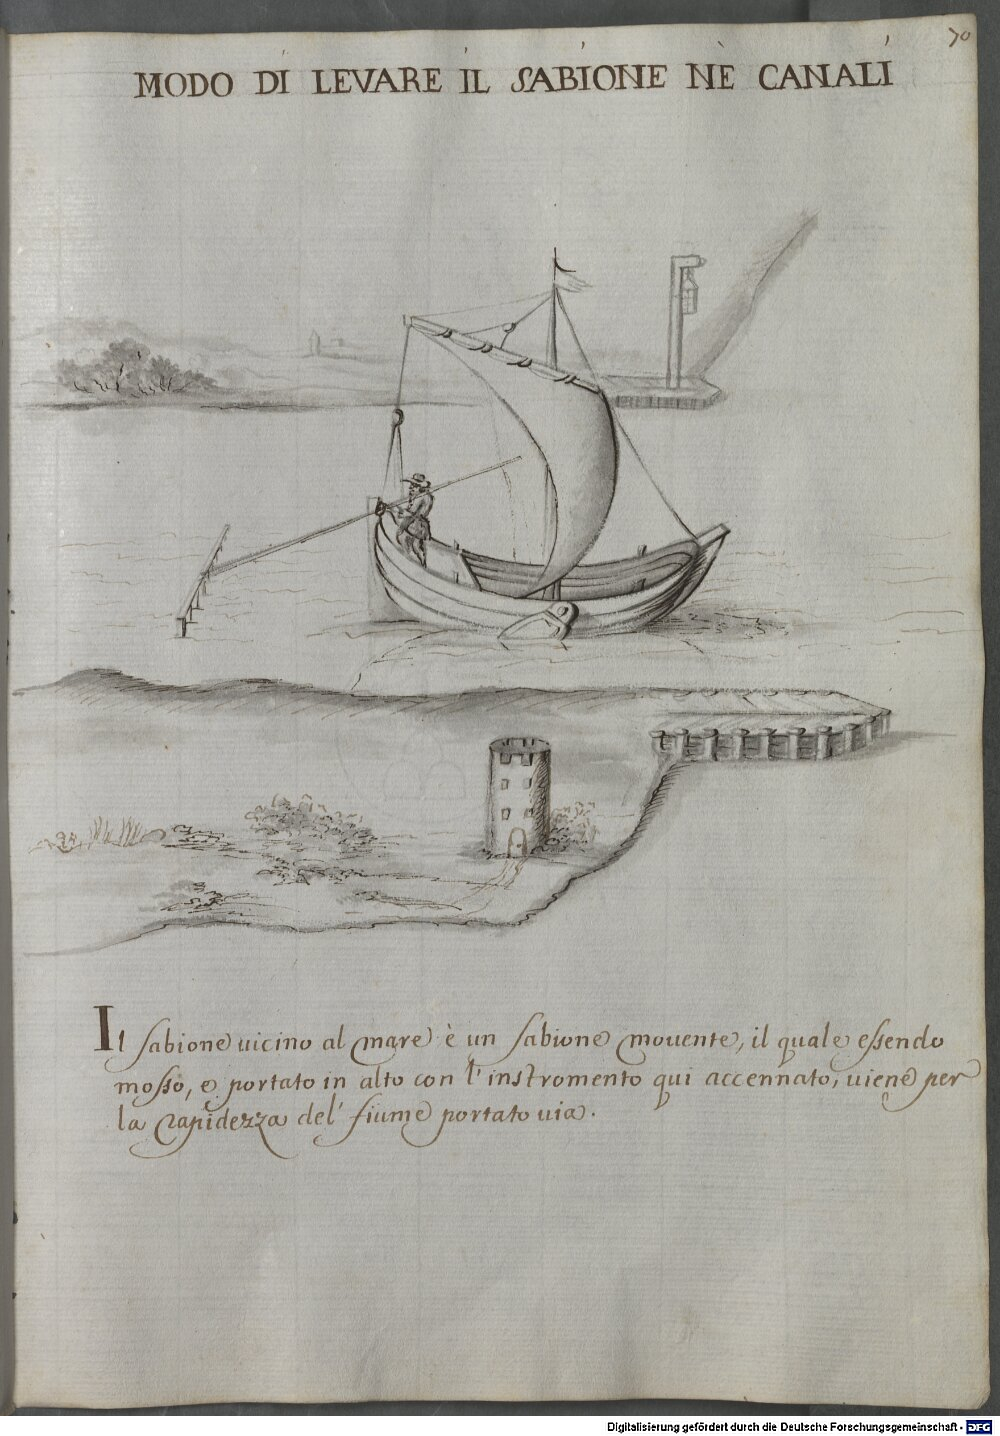 70
MODO DI LEVARE IL SABIONE NÈ CANALI
Il sabione uicino al mare è un sabione mouente, il quale essendo
mosso, e portato in alto con l'instromento qui accennato, uiene per
la rapidezza del' fiume portato uia.
Digitalisierung gefördert durch die Deutsche Forschungsgemeinschaft - DFG